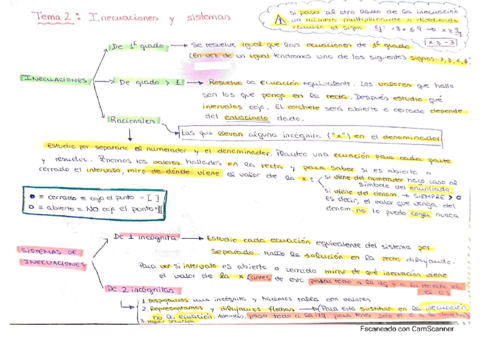 Tema 2: Inecuaciones y sistemas
Si paso al otro lado de la inecuación
un número multiplicando o dividiendo
cambio el signo. Ej: -3x ≤ 9 →
x ≥ -3
De 1º grado → Se resuelve igual que las ecuaciones de 1º grado
(En vez de un igual tendremos uno de los siguientes signos
INECUACIONES
De grado > 1 → Resuelvo la ecuación equivalente. Los valores que halle
son los que pongo en la recta. Después estudio qué
intervalos cojo. El corchete será abierto o cerrado depende
del enunciado dado.
Racionales
Las que llevan alguna incógnita ("x") en el denominador
Estudio por separado el numerador y el denominador. Planteo una ecuación para cada parte
y resuelvo. Ponemos los valores hallados en la recta y para saber si es abierto o
cerrado el intervalo, miro de dónde viene el valor de la x:
si viene del numerador hago caso al
símbolo del enunciado
si viene del denom. → SIEMPRE
Es decir, el valor que venga del
denom. no lo puedo coger nunca
● = cerrado = cojo el punto = [ ]
○ = abierto = NO cojo el punto =
SISTEMAS DE
INECUACIONES
De 1 incógnita → Estudio cada ecuación equivalente del sistema por
separado. Hallo la solución en la recta dibujando.
Para ver si intervalo es abierto o cerrado miro de qué inecuación viene
el valor de la x
De 2 incógnitas
1. Despejamos una incógnita y hacemos tabla con valores
2. Representamos y dibujamos flechas → Para esto sustituir en la inecuación
no la ecuación.
Escaneado con CamScanner